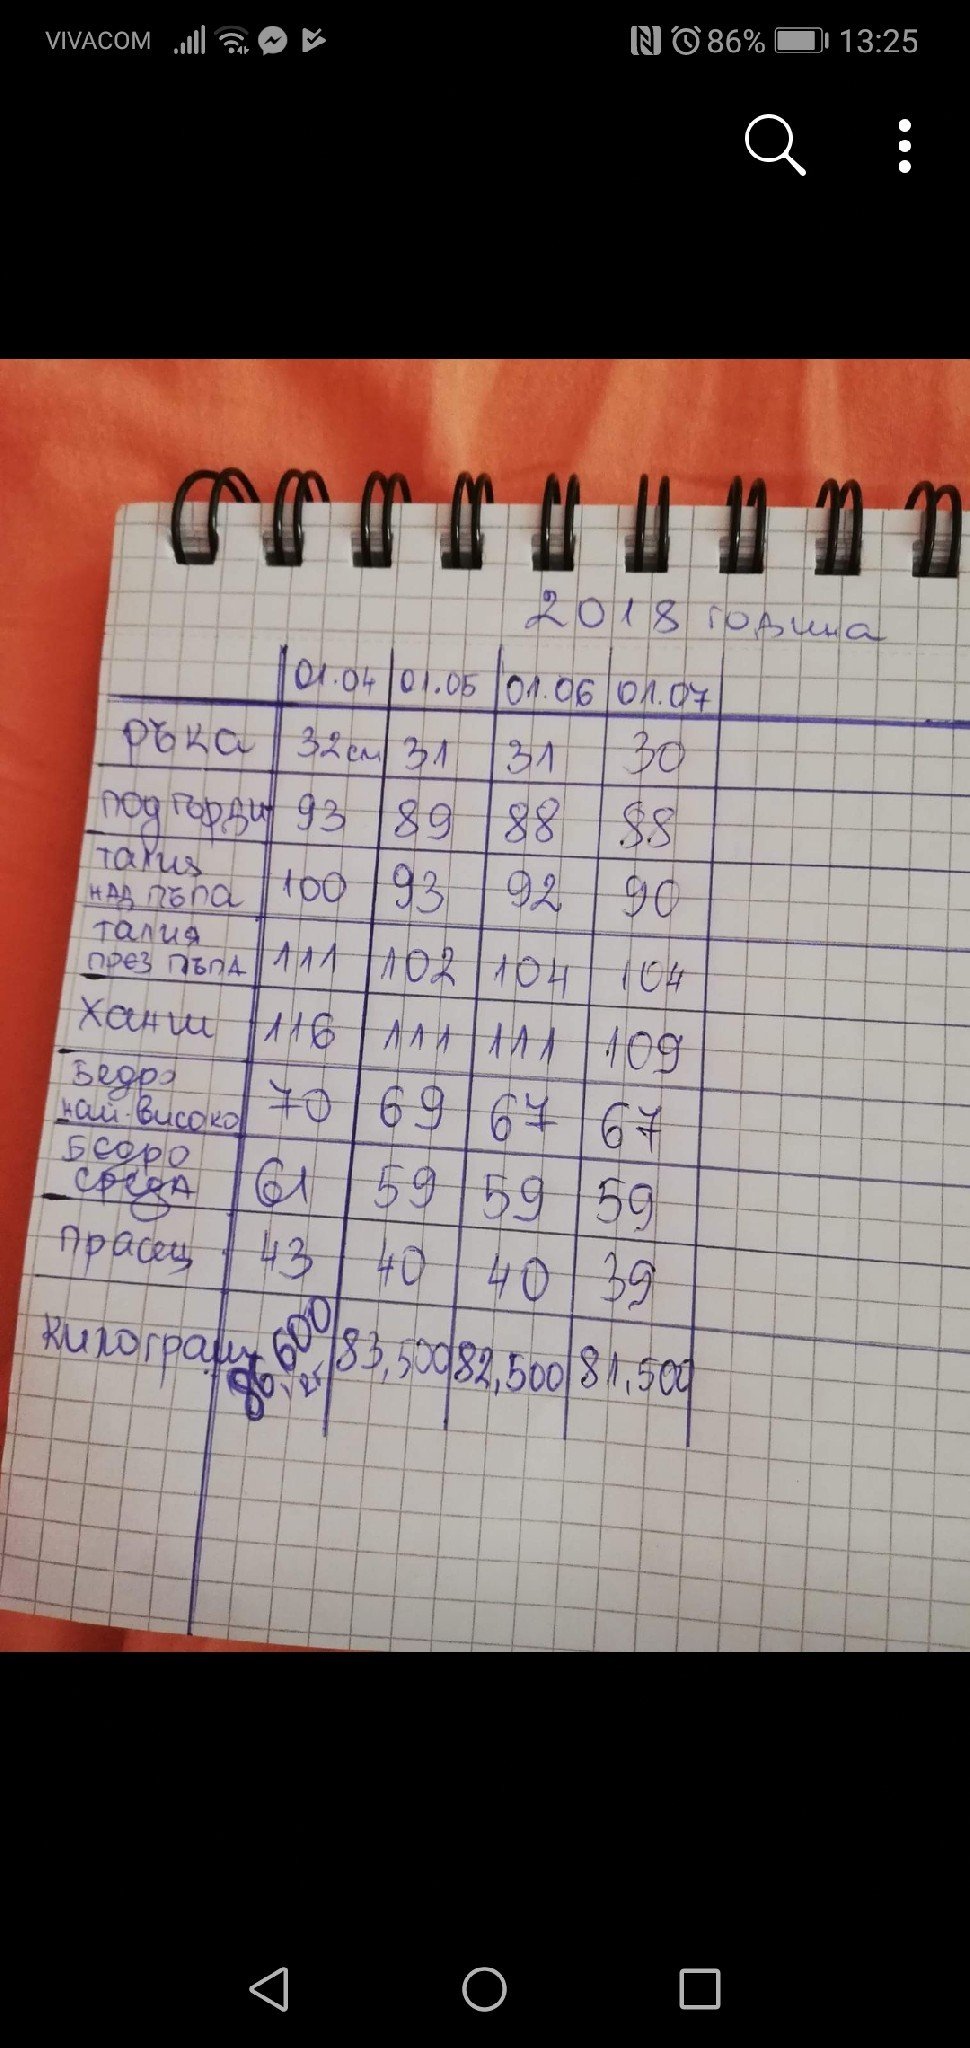 VIVACOM 86% 13:25
2018 година
01.04 01.05 01.06 01.07
ръка 32см 31 31 30
под гърди 93 89 88 88
талия
над пъпа 100 93 92 90
талия
през пъпа 111 102 104 104
Ханш 116 111 111 109
Бедро
най-високо 70 69 67 67
Бедро
среда 61 59 59 59
Прасец 43 40 40 39
килограми 600 83,500 82,500 81,500